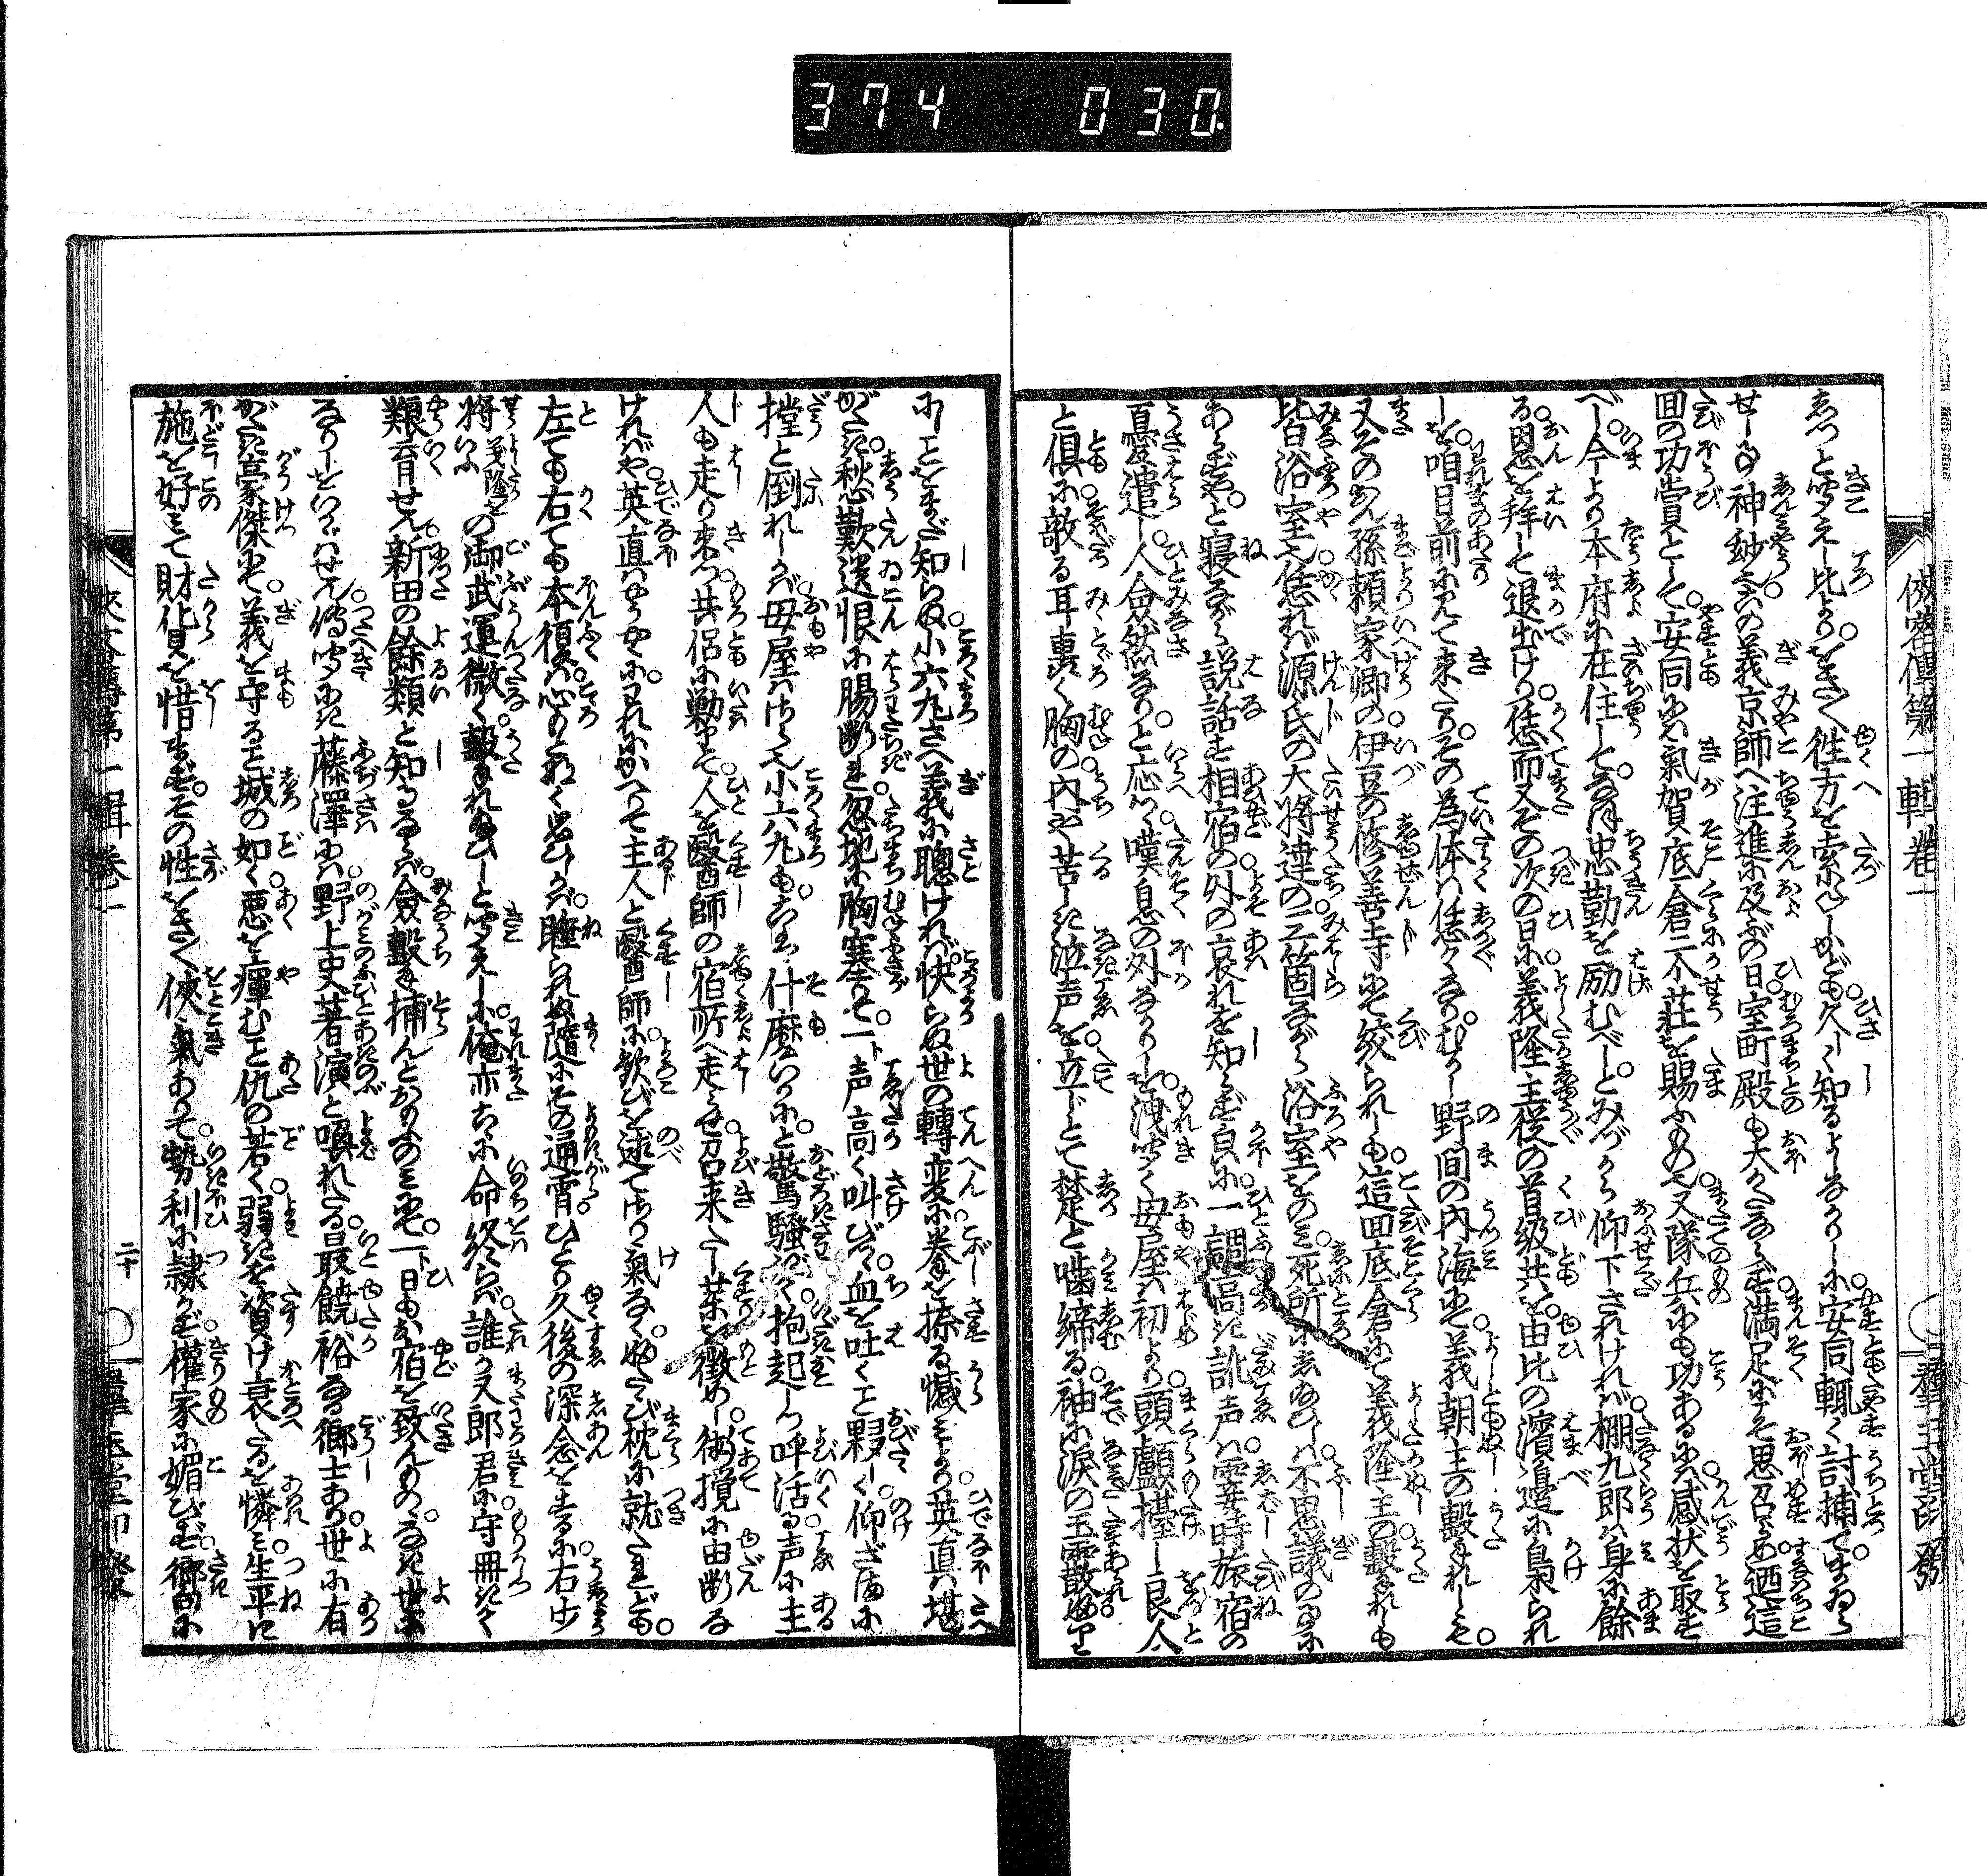 374 030
俠客傳第一輯卷一
しつと聞えし比より。をさ〳〵往方を索ねしかども。久しく知るよしなかりしに。安同輒く討捕て。まゐら
せしは神妙也。義。京師へ注進に及ぶの日。室町殿も大かたならず。満足にぞ思召あらめ。迺這
回の功賞として。安同には氣賀底倉二个莊を賜ふもの也。又隊兵にも功あるには。感状を取せ
べし。今より本府に在住して。なほ忠勤を励むべし。とみづから仰下されければ。棚九郎は身に餘
る。恩を拜して退出けり。恁而又その次の日に。義隆主従の首級共を。由比の濱邊に梟られ
しを。咱目前に見て來たり。その為体は恁々なり。むかし野間の内海にて。義朝主の撃れしも。
又その おん孫頼家卿の。伊豆の修善寺にて絞られしも。這回底倉にて。義隆主の撃れしも
皆浴室也。恁れば源氏の大将達の。三箇ながら浴室をのみ。死所にしぬひしは。不思議の事に
あらずや。と寝ながら説話す。相宿の。外の哀れを知らず㒵に。一調高き訛声は。霎時旅宿の
憂遣し。人僉然なり。と応へつ。嘆息の外なかりしを。洩聞く母屋は初より。頭顱を擡し良人
と倶に。敧る耳裏く。胸の内さへ苦しき泣声を。立じとて楚と噛締る。袖に涙の玉霰。
群玉堂印發
ことをまだ知らぬ。小六九さへ義に聰ければ。快らぬ世の轉変に。拳を捺る憾みより。英直は堪
がたき。愁歎遺恨に腸断れ。忽地に胸塞りて。一声高く叫びつゝ。血を吐くこと夥しく。仰ざまに
撑と倒れしかば。母屋はさら也小六九も。こは什麼いかに。と驚騒ぎて。抱起しつ呼活る。声に主
人も走り來つ。共侶に勦りて。人を醫師の宿所へ走らせ。召来たし薬を徴め。術掙に由断な
ければや。英直はやうやくに。われにかへりて主人と醫師に。歓びを述てさり氣なく。ふたゝび枕に就たれども。
左ても右ても本復は。心もとなく思ひしかば。睡られぬ隨にその通宵。ひとり久後の深念をするに。右少
将義隆をの御武運微く。撃れ給ひしと聞えしに。俺亦こゝに命終らば。誰か又郎君に守冊きて
類育せん。新田の餘類と知るならば。僉撃も捕んとおもふのみにて。一日もお宿を致んもの。なき世に
なりしをいかゞはせん。傳聞にき藤澤には。野上史著演と喚れたる。最饒裕なる郷士あり。世に有
がたき豪傑にて。義を守ること城の如く。悪を癉むこと仇の若く。弱きを資け衰たるを憐み。生平に
施を好みて財貨を惜まず。その性をさ〳〵俠氣ありて。勢利に隷かず。權家に媚びず。郷黨に
俠客傳第一輯卷一
二十
群玉堂印發